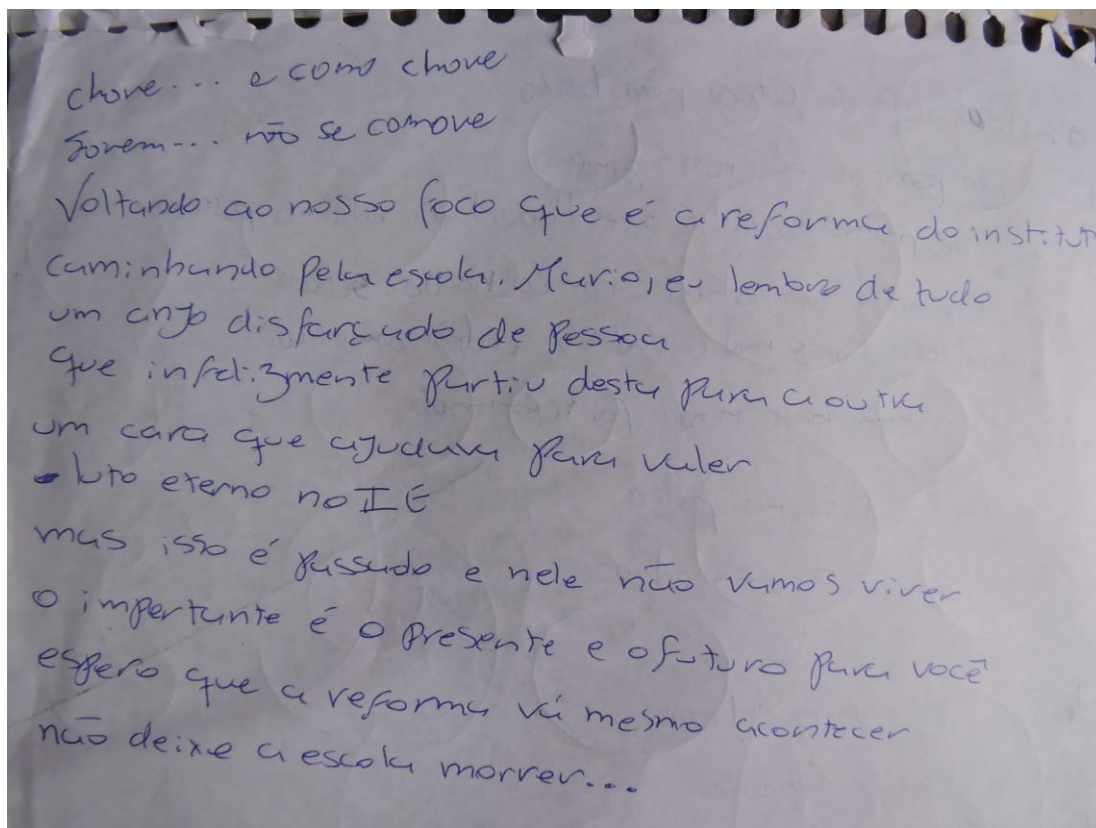 chove... e como chove
Jovem... não se comove
Voltando ao nosso foco que é a reforma do institut
caminhando pela escola. Mario, eu lembro de tudo
um anjo disfarçado de pessoa
que infelizmente partiu desta para a outra
um cara que ajudava para valer
luto eterno no IE
mas isso é passado e nele não vamos viver
o importante é o presente e o futuro para você
espero que a reforma vá mesmo acontecer
não deixe a escola morrer...